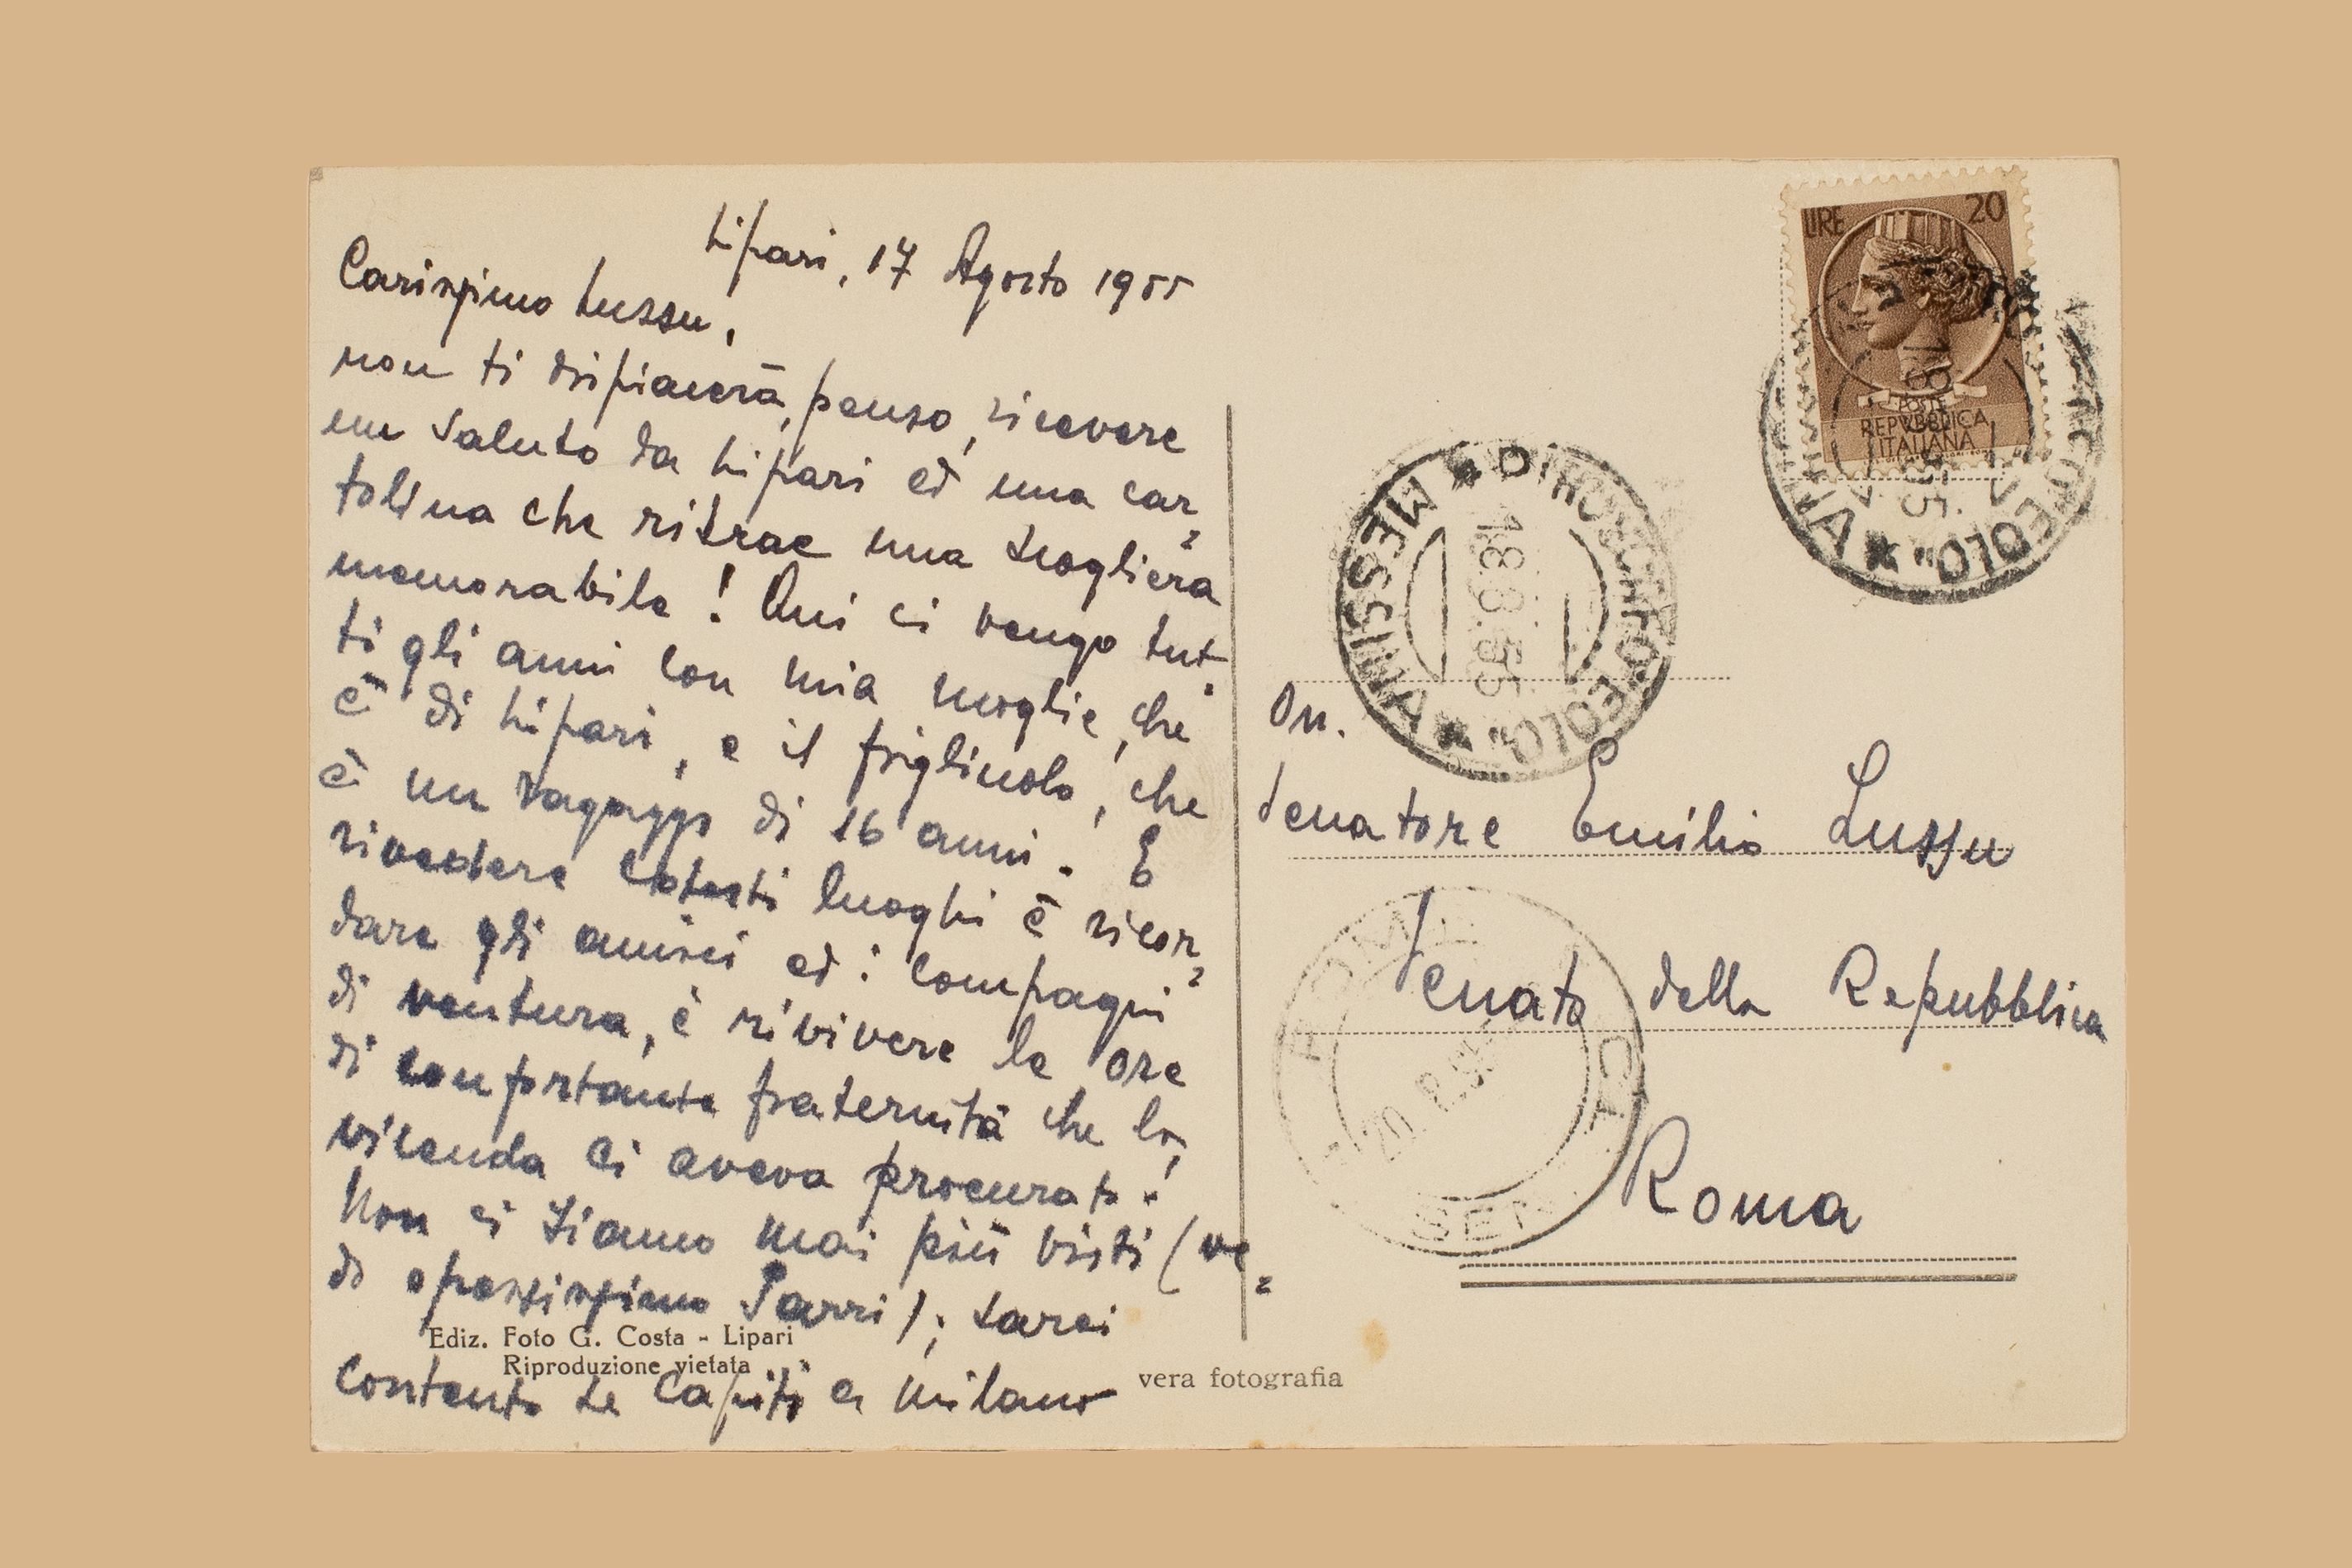 Lipari, 17 Agosto 1955
Carissimo Lussu,
non ti dispiacerà, penso, ricevere
un saluto da Lipari ed una car=
tolina che ritrae una scogliera
memorabile! Qui ci vengo tut-
ti gli anni con mia moglie, che
è di Lipari, e il figliuolo, che
è un ragazzo di 16 anni. E
rivedere cotesti luoghi è ricor=
dare gli amici ed i compagni
di ventura, è rivivere le ore
di confortante fraternità che la
vicenda ci aveva procurato!
Non ci siamo mai più visti (ve=
do spessissimo Parri); sarei
contento se capiti a Milano
Ediz. Foto G. Costa - Lipari
Riproduzione vietata
vera fotografia
LIRE 20
POSTE
REPVBBLICA
ITALIANA
EOLO
18.8.55
MESSINA
EOLO
18.8.55
On.
Senatore Emilio Lussu
Senato della Repubblica
Roma
ROMA
20. 8. 55
SEN